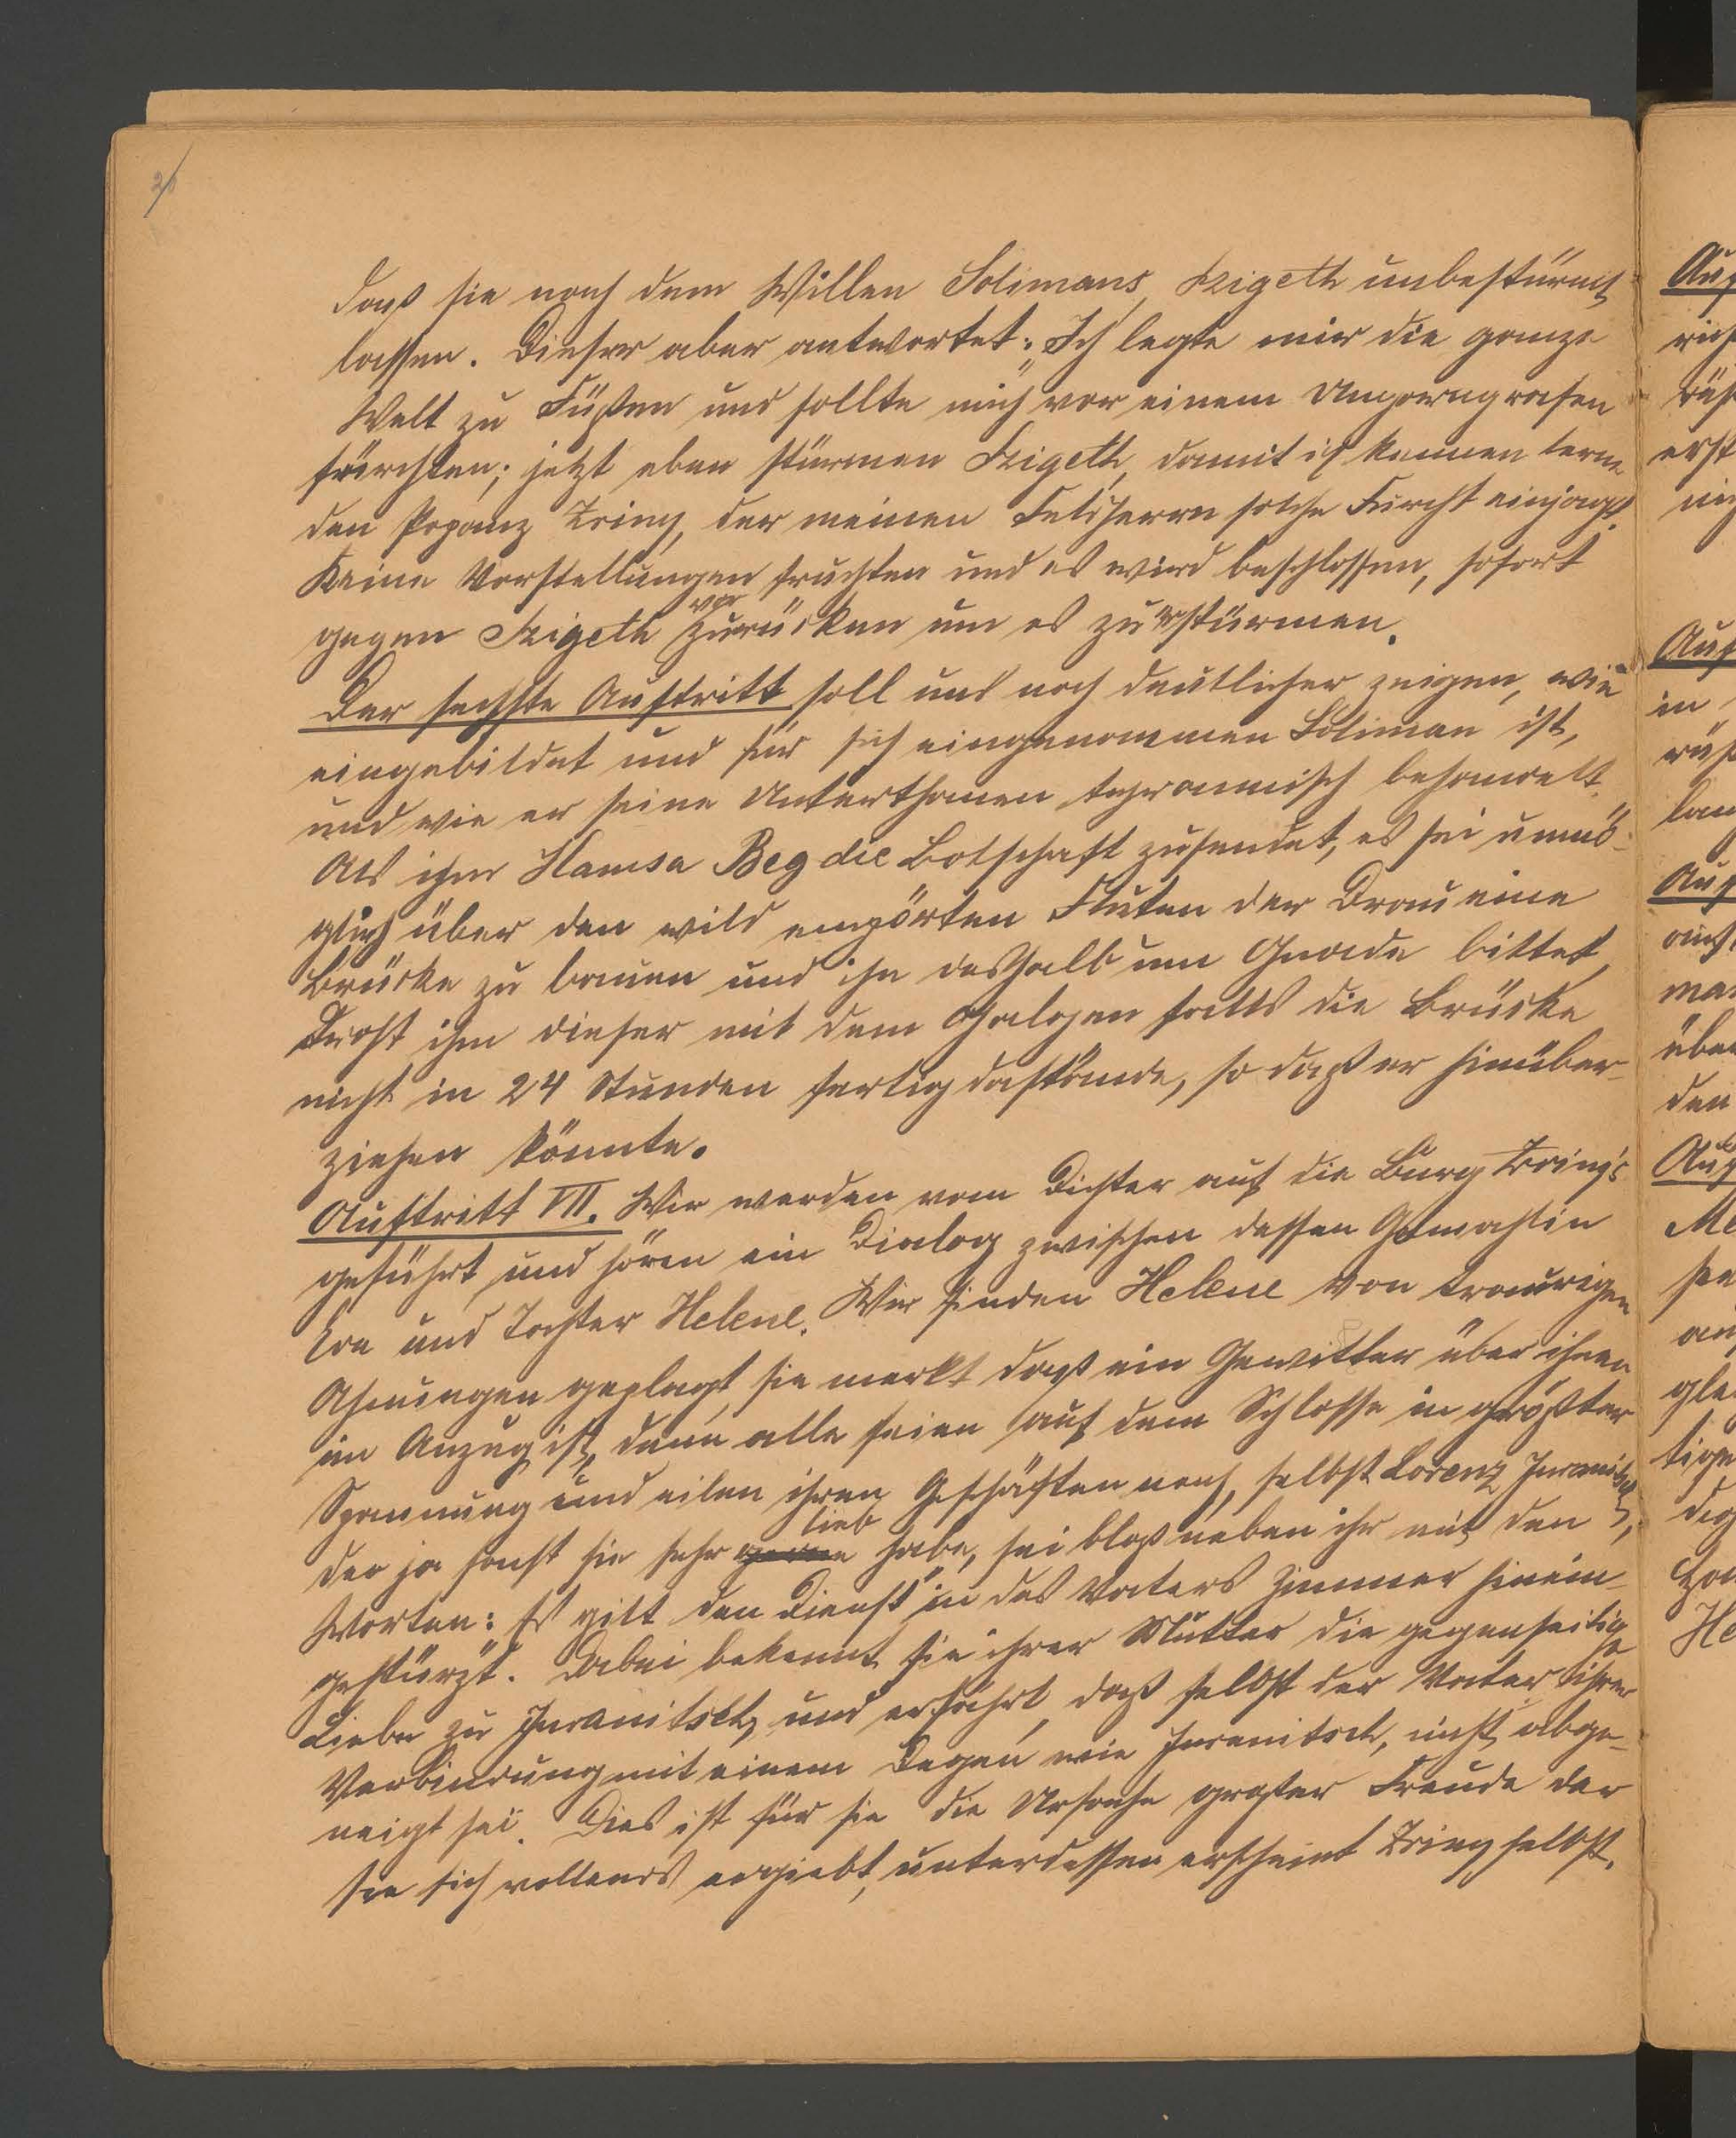 daß sie nach dem Willen Solimans, Szigeth unbestürmt
lassen. Dieser aber antwortet: „Ich legte mir die ganze
Welt zu Füßen und sollte mich vor einem Ungarngrafen
fürchten; jetzt eben stürmen Szigeth, damit ich kennen lerne
den Popanz Zriny, der meinen Feldherrn solche Furcht einjagt.
Keine Vorstellungen fruchten und es wird beschlossen, sofort
vor
gegen Szigeth zurücken um es zu erstürmen.
Der sechste Auftritt soll uns noch deutlicher zeigen, wie
eingebildet und für sich eingenommen Soliman ist,
und wie er seine Unterthanen tyrannisch behandelt.
Als ihm Hamsa Beg die Botschaft zusendet, es sei unmö-
glich über den wild empörten Fluten der Drau eine
Brücke zu bauen und ihn deshalb um Gnade bittet,
droht ihm dieser mit dem Galgen falls die Brücke
nicht in 24 Stunden fertig dastände, so daß er hinüber-
ziehen könnte.
Auftritt VII. Wir werden vom Dichter auf die Burg Zriny's
geführt und hören ein Dialog zwischen dessen Gemahlin
Eva und Tochter Helene. Wir finden Helene von traurigen
Ahnungen geplagt, sie merkt daß ein Gewitter über ihnen
im Anzug ist, denn alle seien auf dem Schlosse in größter
Spannung und eilen ihren Geschäften nach, selbst Lorenz Juranitsch,
lieb
der ja sonst sie sehr gerne habe, sei bloß neben ihr mit den
Worten: Es gilt den Dienst" in des Vaters Zimmer hinein-
gestürzt. Dabei bekennt sie ihrer Mutter die gegenseitige
Liebe zu Juranitsch, und erfährt, daß selbst der Vater ihrer
Verbindung mit einem Degen wie Juranitsch, nicht abge-
neigt sei. Dies ist für sie die Ursache großer Freude der
sie sich vollends ergiebt, unterdessen erscheint Zriny selbst.